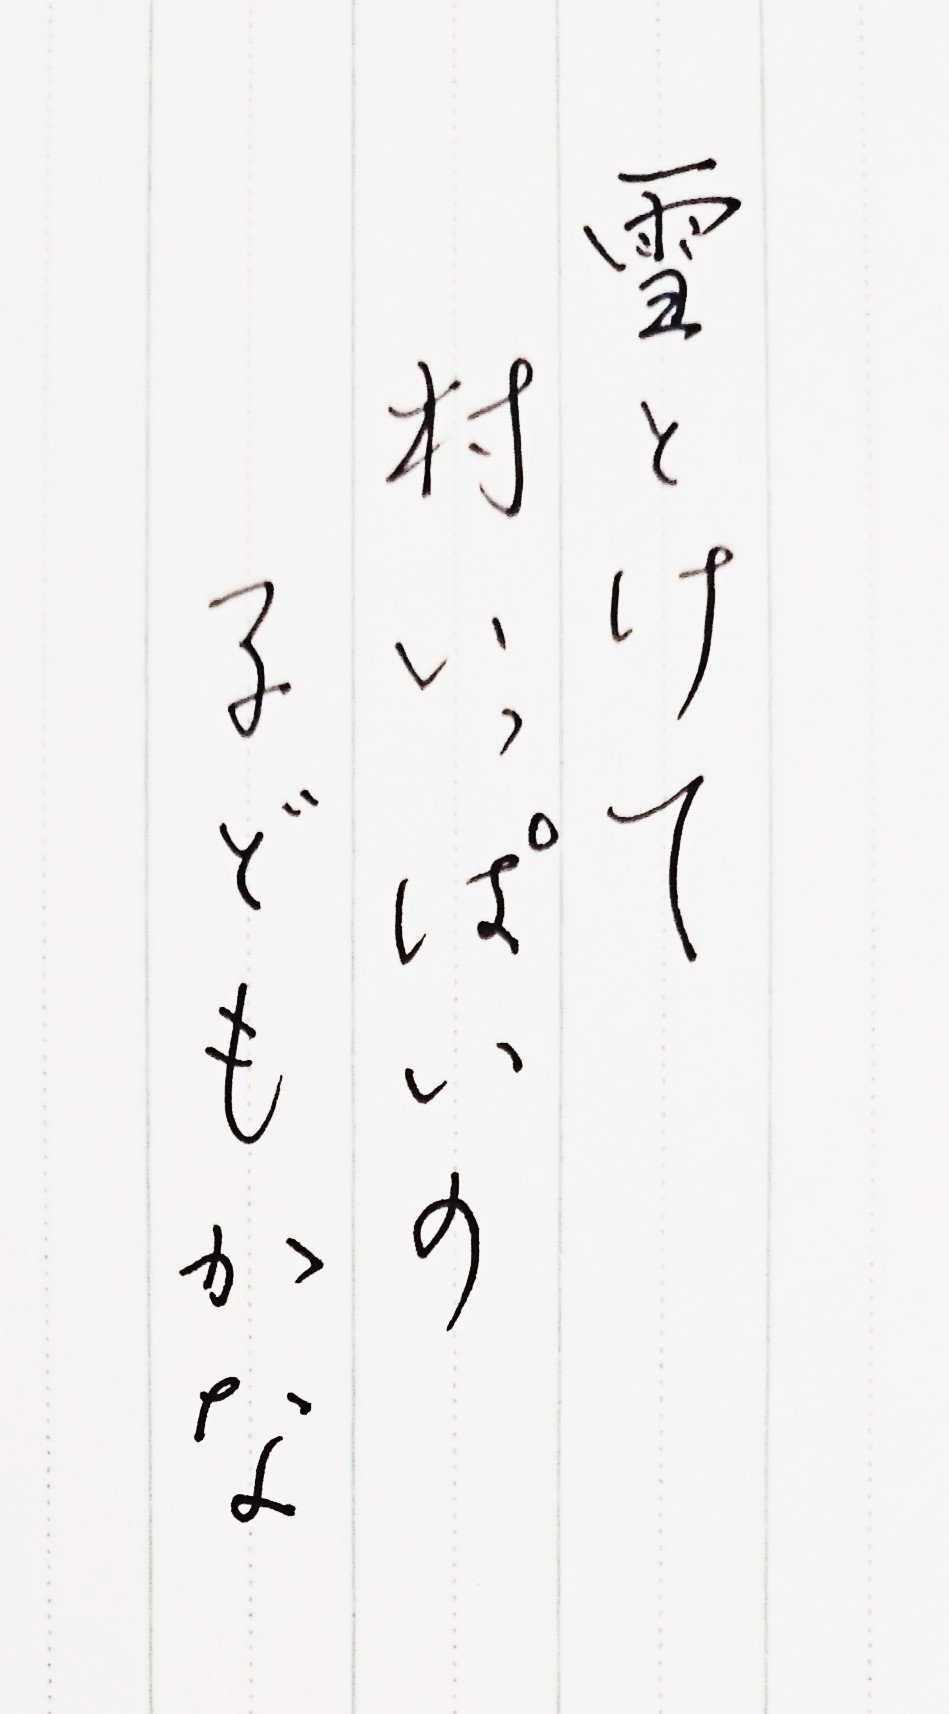 雪とけて
村いっぱいの
子どもかな